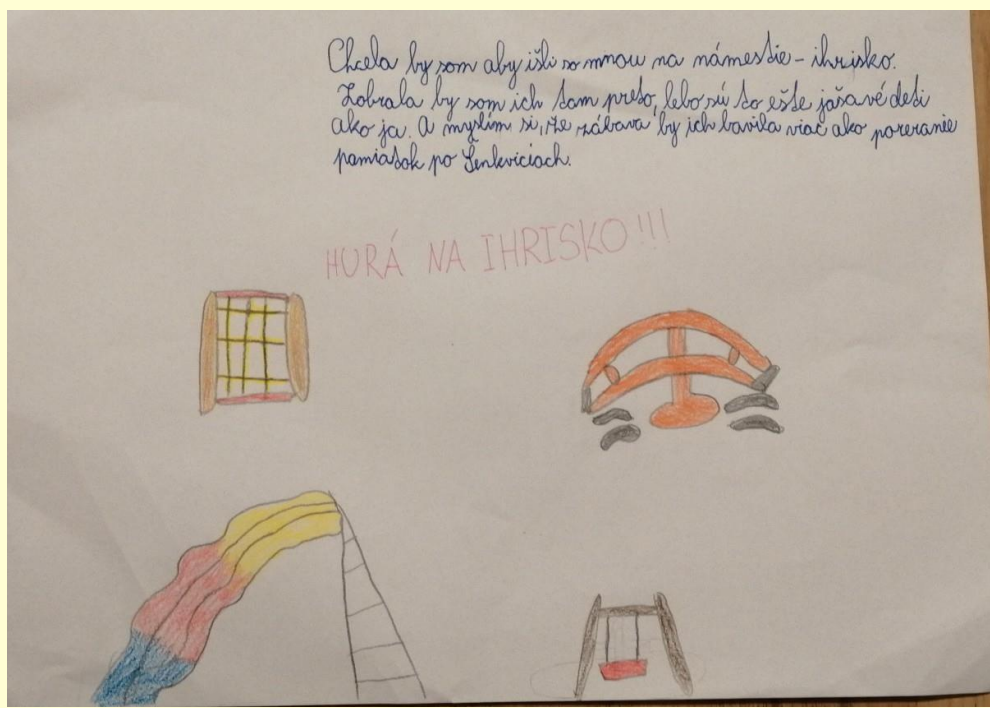 Chcela by som aby išli so mnou na námestie - ihrisko.
Zobrala by som ich tam preto, lebo sú to ešte jašavé deti
ako ja. A myslím si, že zábava by ich bavila viac ako pozeranie
pamiatok po Šenkviciach.
HURÁ NA IHRISKO!!!